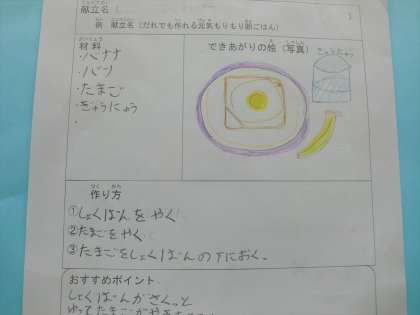 献立名
例 献立名（だれでも作れる元気もりもり朝ごはん）
材料
・バナナ
・パン
・たまご
・ぎゅうにゅう
・
できあがりの絵（写真）
ぎゅうにゅう
作り方
①しょくぱんをやく
②たまごをやく
③たまごをしょくぱんの下におく。
おすすめポイント
しょくぱんがさくっと